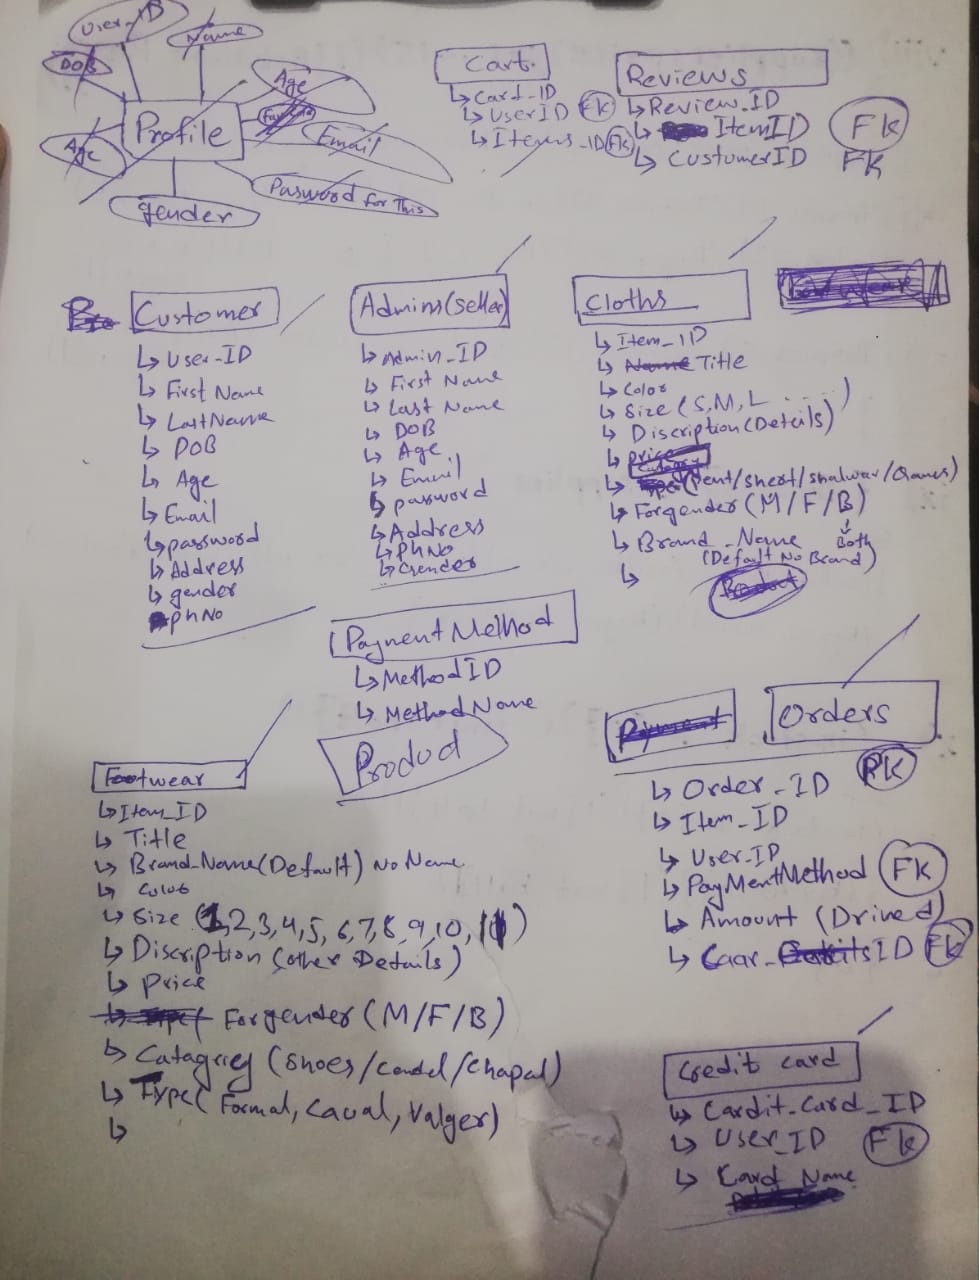 User_ID
Name
DOB
Age
Profile
Age
Email
gender
Pasword for This
Cart.
↳ Card_ID
↳ UserID FK
↳ Items_ID FK
Reviews
↳ Review_ID
↳ ItemID FK
↳ CustumerID FK
Customer
↳ User_ID
↳ First Name
↳ Last Name
↳ DOB
↳ Age
↳ Email
↳ password
↳ Address
↳ gender
phNo
Admins(seller)
↳ Admin_ID
↳ First Name
↳ Last Name
↳ DOB
↳ Age
↳ Email
↳ password
↳ Address
↳ PhNo
↳ Gender
Cloths
↳ Item_ID
↳ Name Title
↳ Color
↳ Size (S,M,L .....)
↳ Discription(Details)
↳ price
↳ (Pent/shert/shalwar/
↳ Forgender (M/F/B)
Both
↳ Brand_Name
(Default No Brand)
↳
Product
Payment Method
↳ MethodID
↳ MethodName
Prodod
Payment
Orders
↳ Order_ID PK
↳ Item_ID
↳ User_ID
↳ PayMentMethod FK
↳ Amount (Drived)
↳ ID FK
Footwear
↳ Item_ID
↳ Title
↳ Brand_Name(Default) No Name
↳ Color
↳ Size (1,2,3,4,5,6,7,8,9,10,11)
↳ Discription (other Details)
↳ Price
↳ Forgender (M/F/B)
↳ Catagriey (Shoes/Candel/Chapal)
↳ Type( Formal, Caual, Valger)
↳
Credit card
↳ Cardit_Card_ID
↳ User_ID FK
↳ Card Name